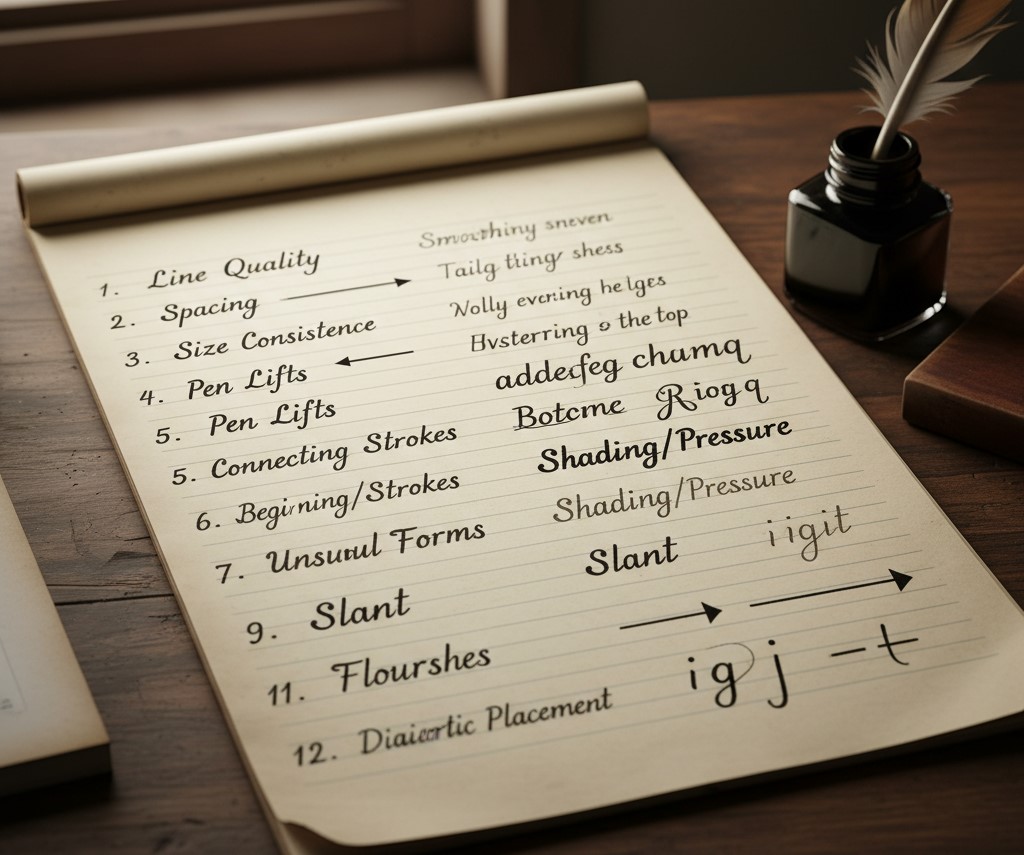 1. Line Quality
Smoothiny sneven
2. Spacing
Tailg tling shess
3. Size Consistence
Nolly evening helges
4. Pen Lifts
Evsterring the top
5. Pen Lifts
addecfeg chumq
5. Connecting Strokes
Botcme Riogq
6. Beginning/Strokes
Shading/Pressure
Shading/Pressure
7. Unsuual Forms
Slant iigit
9. Slant
11. Flourshes
i g j – t
12. Placement